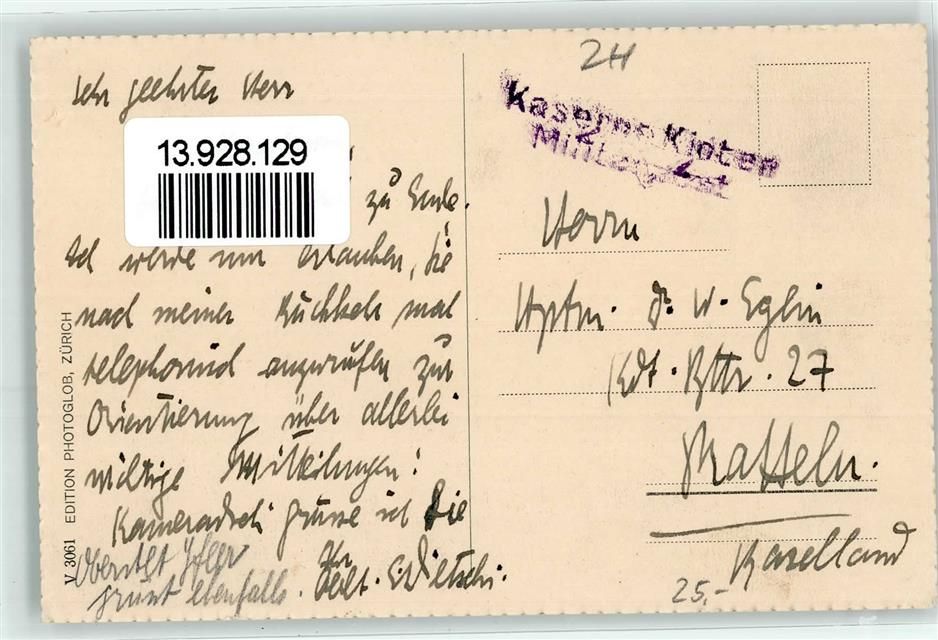 Sehr geehrter Herr
13.928.129
zu Ende.
Ich werde mir erlauben, Sie
nach meiner Rückkehr mal
telephonisch anzurufen zur
Orientierung über allerlei
wichtige Mitteilungen!
Kameradsch. grüsse ich Sie
Ihr
Oblt.
grüsst ebenfalls.
V 3061 EDITION PHOTOGLOB, ZÜRICH
24
Kaserne Kloten
Militärpost
Herrn
Hptm. Dr. W. Eglin
Kdt. Bttr. 27
Pratteln.
Baselland
25,-